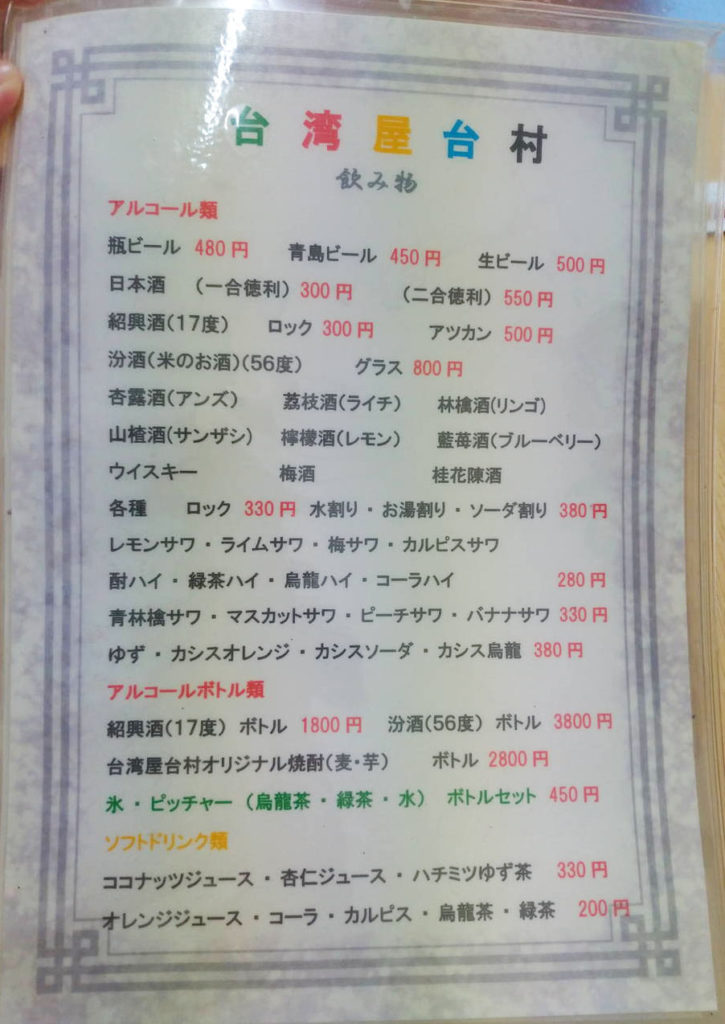 台湾屋台村
飲み物
アルコール類
瓶ビール 480円 青島ビール 450円 生ビール 500円
日本酒 （一合徳利）300円 （二合徳利）550円
紹興酒（17度） ロック 300円 アツカン 500円
汾酒（米のお酒）（56度） グラス 800円
杏露酒（アンズ） 荔枝酒（ライチ） 林檎酒（リンゴ）
山楂酒（サンザシ） 檸檬酒（レモン） 藍苺酒（ブルーベリー）
ウイスキー 梅酒 桂花陳酒
各種 ロック 330円 水割り・お湯割り・ソーダ割り 380円
レモンサワ・ライムサワ・梅サワ・カルピスサワ
酎ハイ・緑茶ハイ・烏龍ハイ・コーラハイ 280円
青林檎サワ・マスカットサワ・ピーチサワ・バナナサワ 330円
ゆず・カシスオレンジ・カシスソーダ・カシス烏龍 380円
アルコールボトル類
紹興酒（17度）ボトル 1800円 汾酒（56度）ボトル 3800円
台湾屋台村オリジナル焼酎（麦・芋） ボトル 2800円
氷・ピッチャー（烏龍茶・緑茶・水） ボトルセット 450円
ソフトドリンク類
ココナッツジュース・杏仁ジュース・ハチミツゆず茶 330円
オレンジジュース・コーラ・カルピス・烏龍茶・緑茶 200円